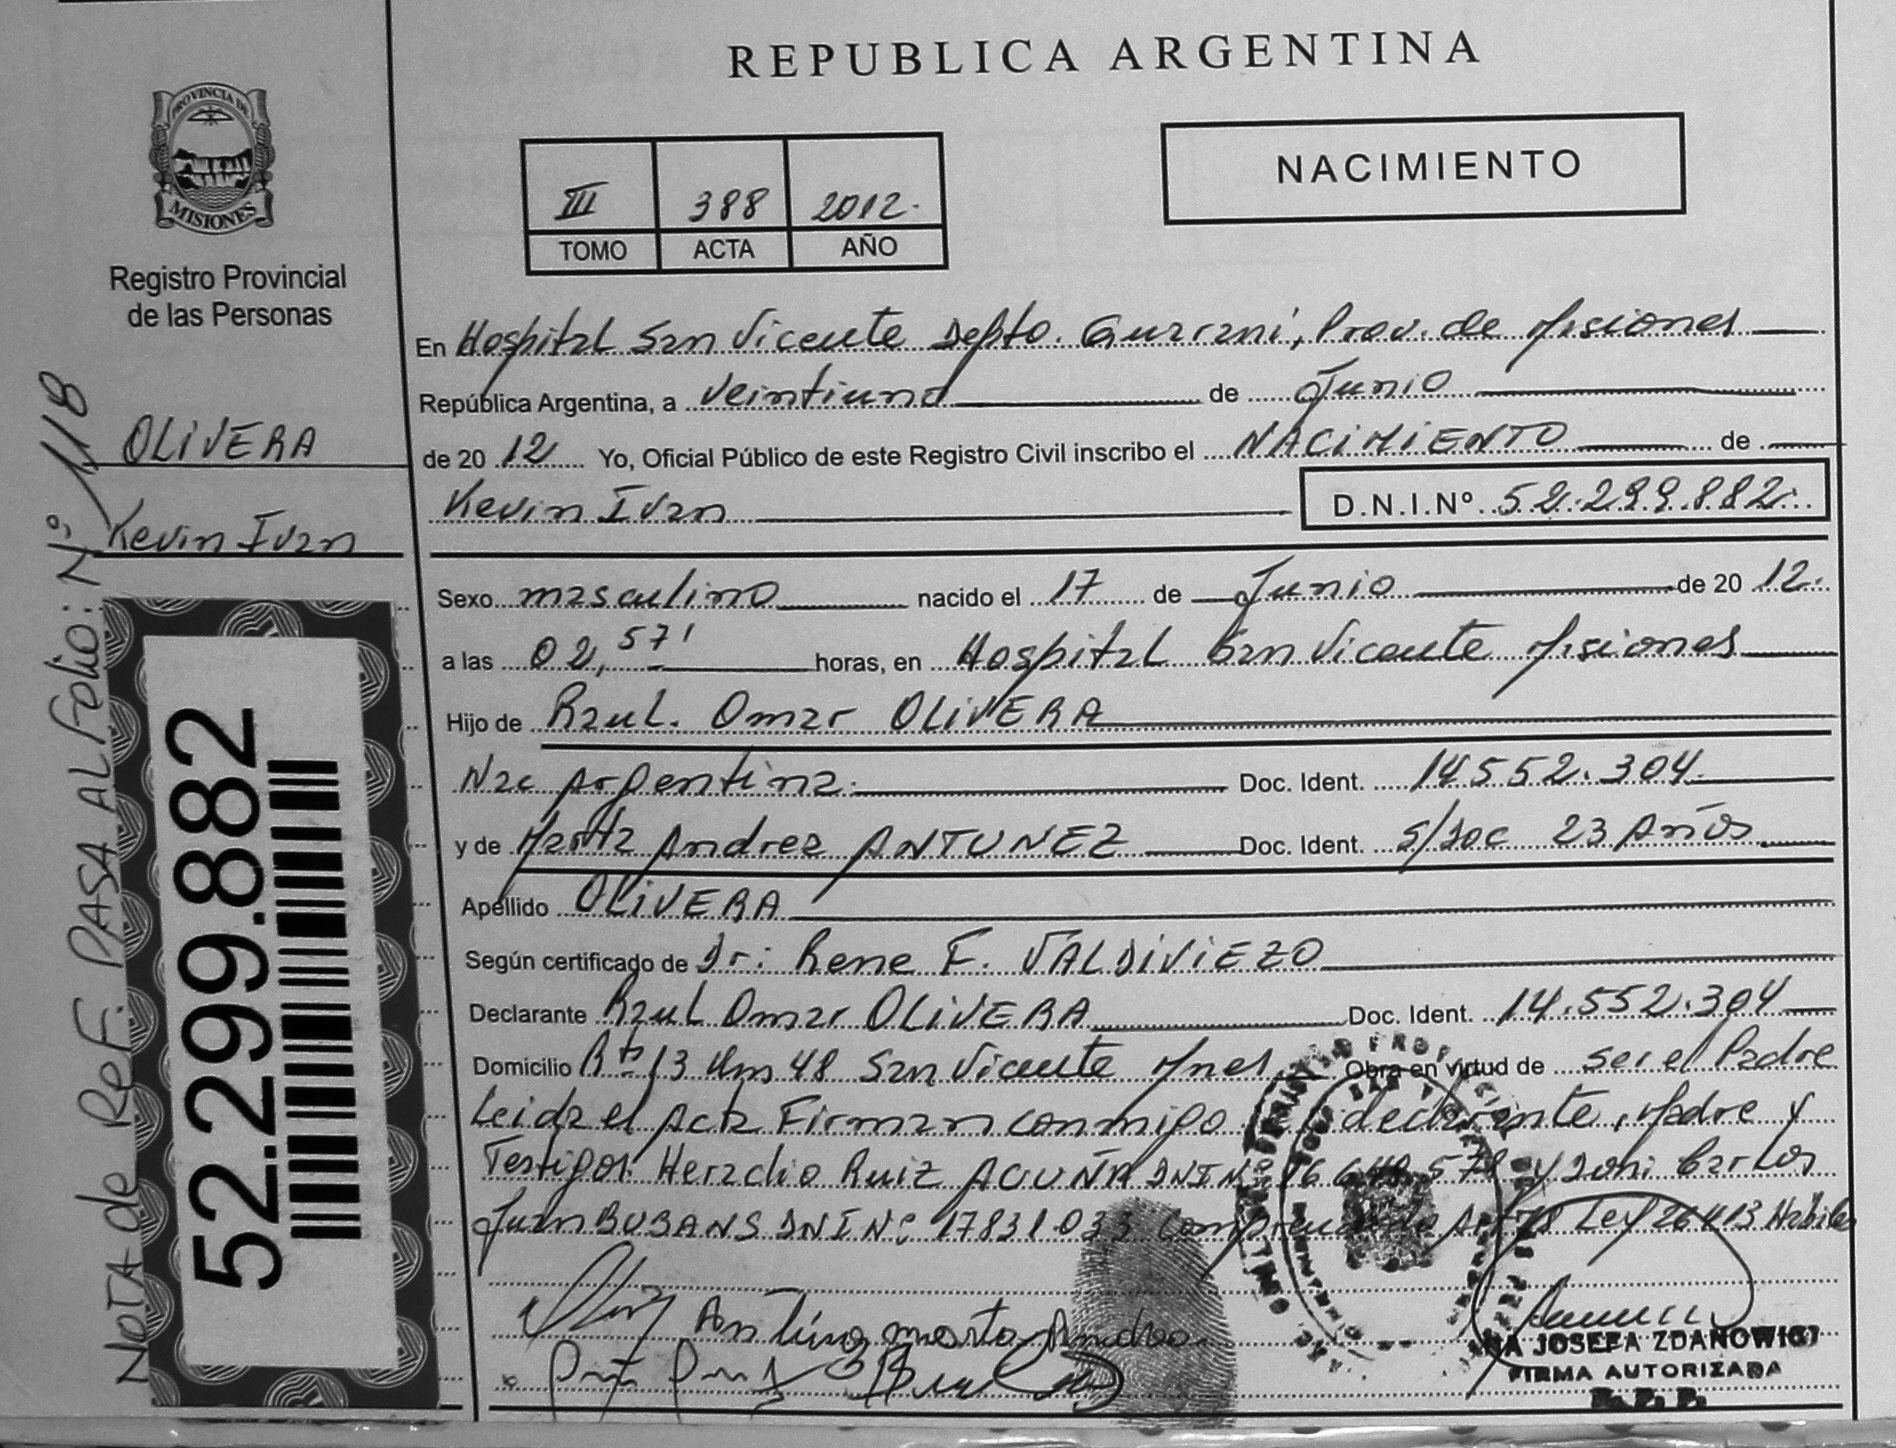 REPUBLICA ARGENTINA
PROVINCIA DE
MISIONES
Registro Provincial
de las Personas
NACIMIENTO
III 388 2012.
TOMO ACTA AÑO
OLIVERA
Kevin Ivan
NOTA de Ref. PASA AL Folio: Nº 118
52.299.882
En Hospital San Vicente Depto. Guarani, Prov. de Misiones
República Argentina, a veintiuno de Junio
de 20 12 Yo, Oficial Público de este Registro Civil inscribo el NACIMIENTO de
Kevin Ivan D.N.I.Nº 52.299.882
Sexo masculino nacido el 17 de Junio de 20 12.
a las 02,57' horas, en Hospital San Vicente Misiones
Hijo de Raul. Omar OLIVERA
Nac Argentina. Doc. Ident. 14552.304
y de Marta Andrea ANTUNEZ Doc. Ident. S/Doc 23 Años
Apellido OLIVERA
Según certificado de Dr: Rene F. VALDIVIEZO
Declarante Raul Omar OLIVERA Doc. Ident. 14.552.304
Domicilio Rta 13 Km 48 San Vicente Mnes Obra en virtud de ser el Padre
Leida el Acta Firman conmigo declarante, Madre y
Testigos: Heraclio Ruiz ACUÑA DNI Nº y Carlos
Juan BUBANS DNI Nº 17831.033 Art 78 Ley 26413 Habiles
Antúnez marta Andrea
JOSEFA ZDANOWICZ
FIRMA AUTORIZADA
R. P. P.